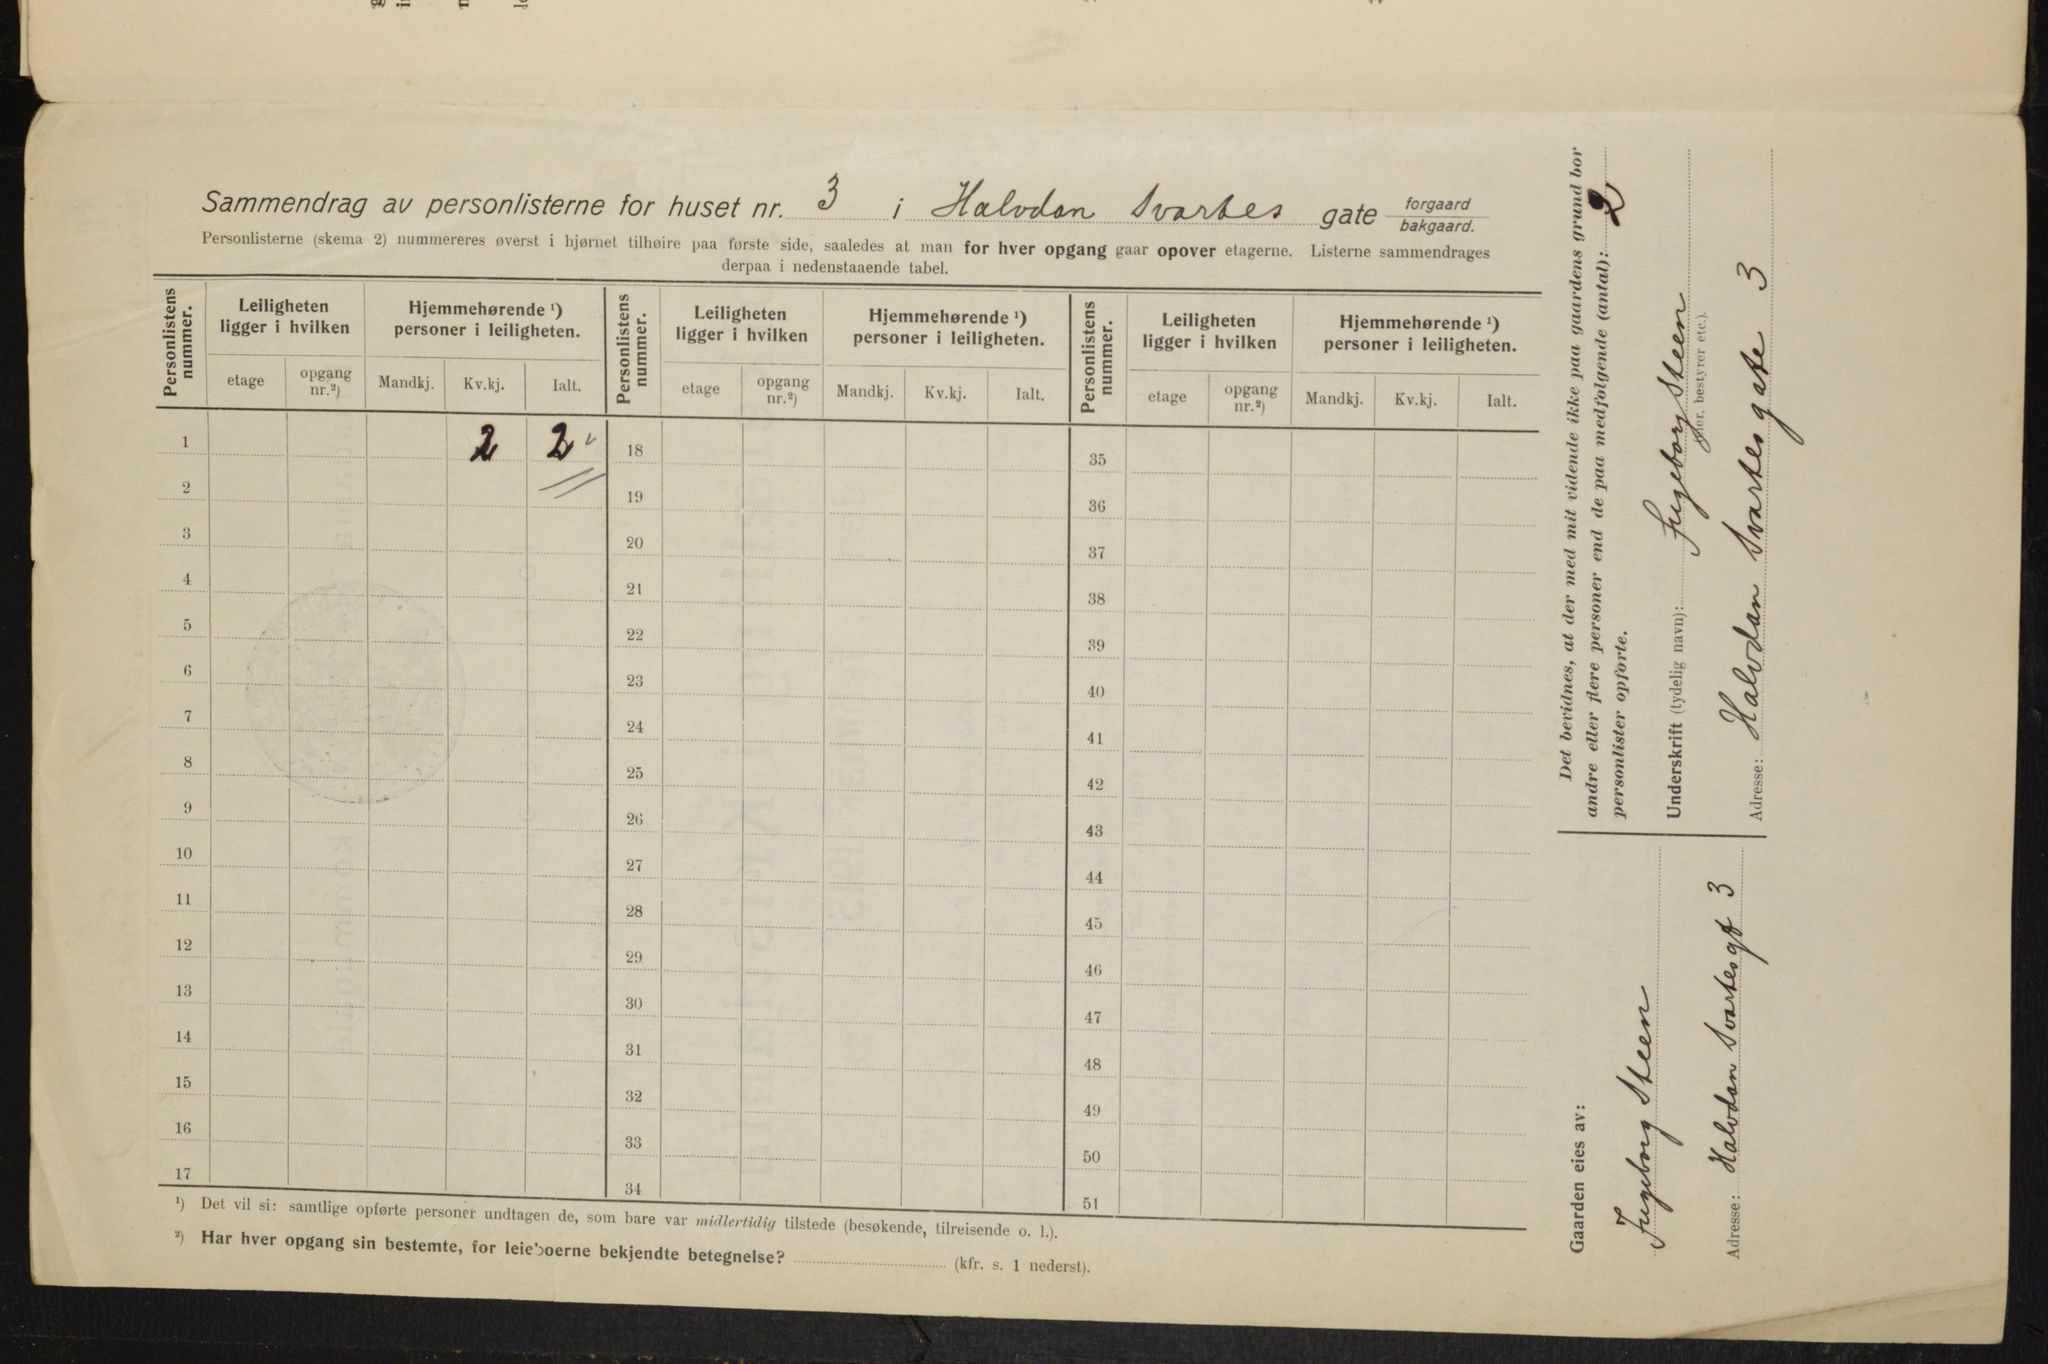 Sammendrag av personlisterne for huset nr. 3 i Halvdan Svartes gate forgaard bakgaard.
Personlisterne (skema 2) nummereres øverst i hjørnet tilhøire paa første side, saaledes at man for hver opgang gaar opover etagerne. Listerne sammendrages
derpaa i nedenstaaende tabel.
Personlistens nummer. Leiligheten ligger i hvilken Hjemmehørende ¹) personer i leiligheten. Personlistens nummer. Leiligheten ligger i hvilken Hjemmehørende ¹) personer i leiligheten. Personlistens nummer. Leiligheten ligger i hvilken Hjemmehørende ¹) personer i leiligheten.
etage opgang nr.²) Mandkj. Kv.kj. Ialt. etage opgang nr.²) Mandkj. Kv.kj. Ialt. etage opgang nr.²) Mandkj. Kv.kj. Ialt.
1 2 2 18 35
2 19 36
3 20 37
4 21 38
5 22 39
6 23 40
7 24 41
8 25 42
9 26 43
10 27 44
11 28 45
12 29 46
13 30 47
14 31 48
15 32 49
16 33 50
17 34 51
¹) Det vil si: samtlige opførte personer undtagen de, som bare var midlertidig tilstede (besøkende, tilreisende o. l.).
²) Har hver opgang sin bestemte, for leieboerne bekjendte betegnelse? (kfr. s. 1 nederst).
Det bevidnes, at der med mit vidende ikke paa gaardens grund bor
andre eller flere personer end de paa medfølgende (antal): 2
personlister opførte.
Underskrift (tydelig navn): Ingeborg Steen
(eier, bestyrer etc.).
Adresse: Halvdan Svartes gate 3
Gaarden eies av:
Ingeborg Steen
Adresse: Halvdan Svartes gt 3